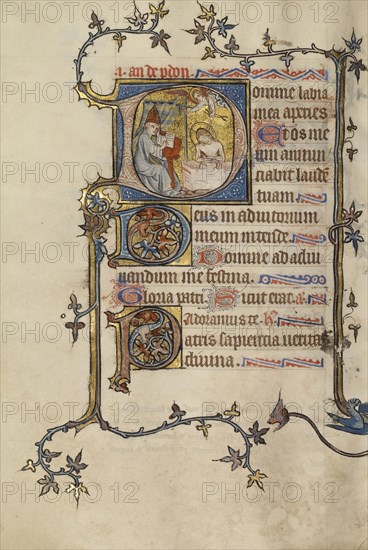 a. an de pdon.
Domine labia
mea apries
Et os me
um annun
ciabit laudē
tuam
Deus in adiutorium
meum intende.
Domine ad adiu
uandum me festina.
Gloria patri. Sicut erat. a.
Adoramus te. H.
Patris sapiencia ueritas
diuina.
PHOTO12